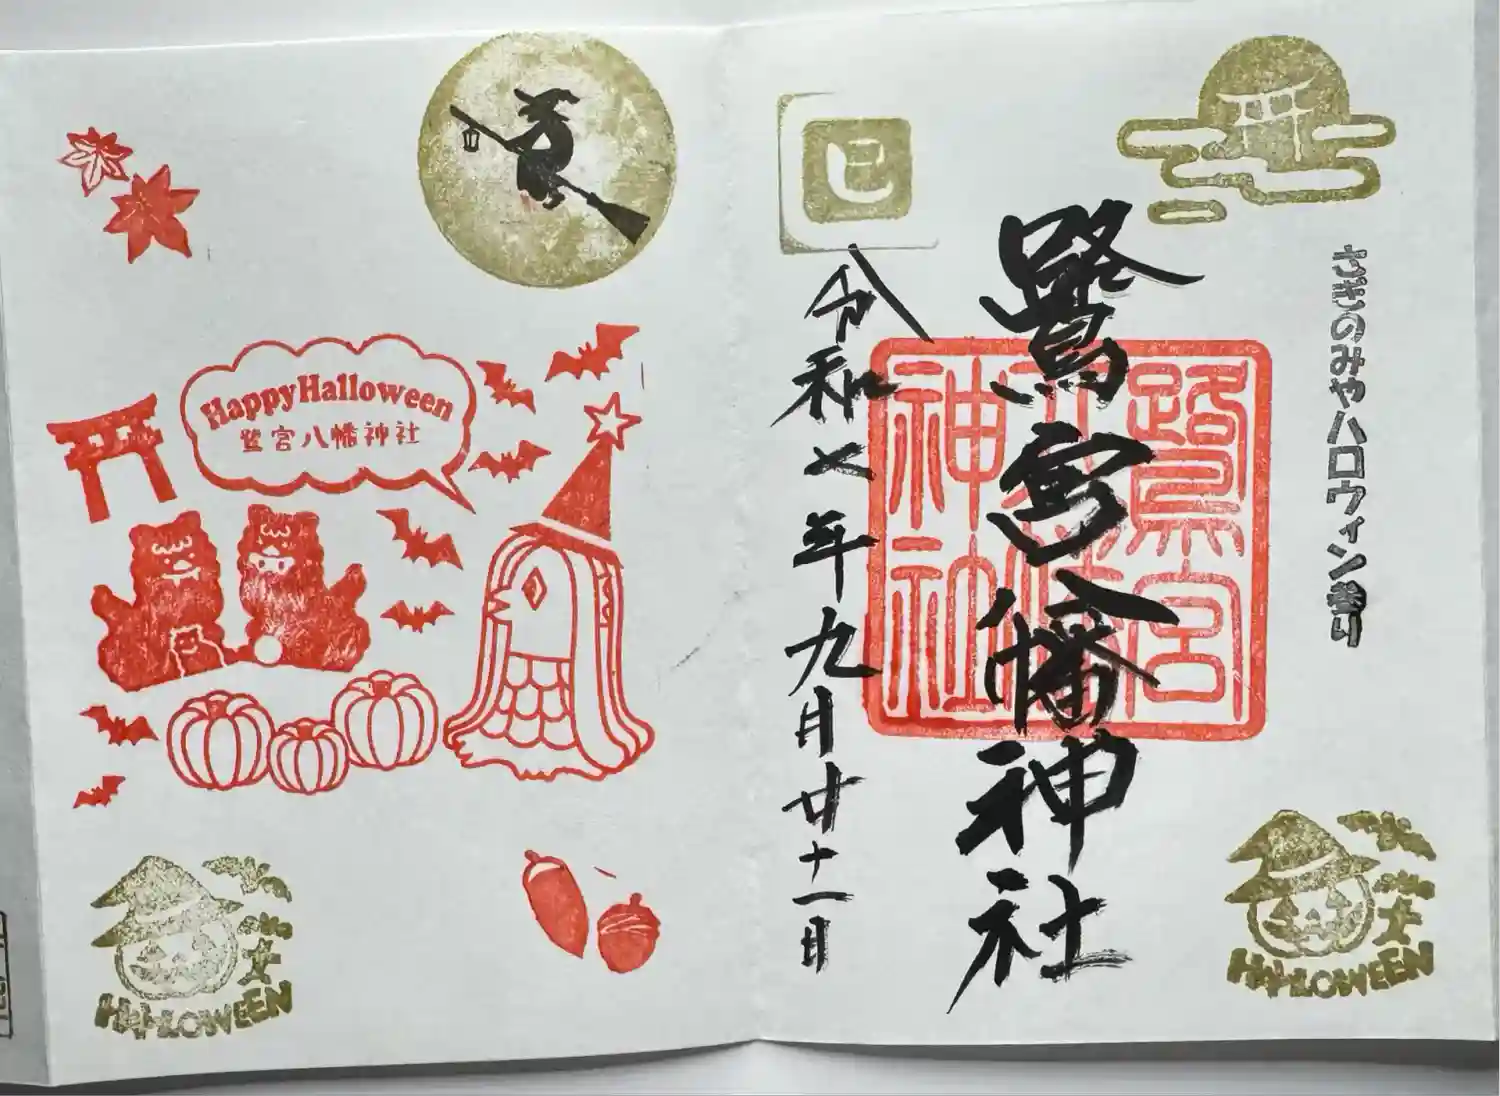 さぎのみやハロウィン祭り
鷺宮八幡神社
鷺宮
神社
巳
令和七年九月廿十一日
HALLOWEEN
HappyHalloween
鷺宮八幡神社
HALLOWEEN